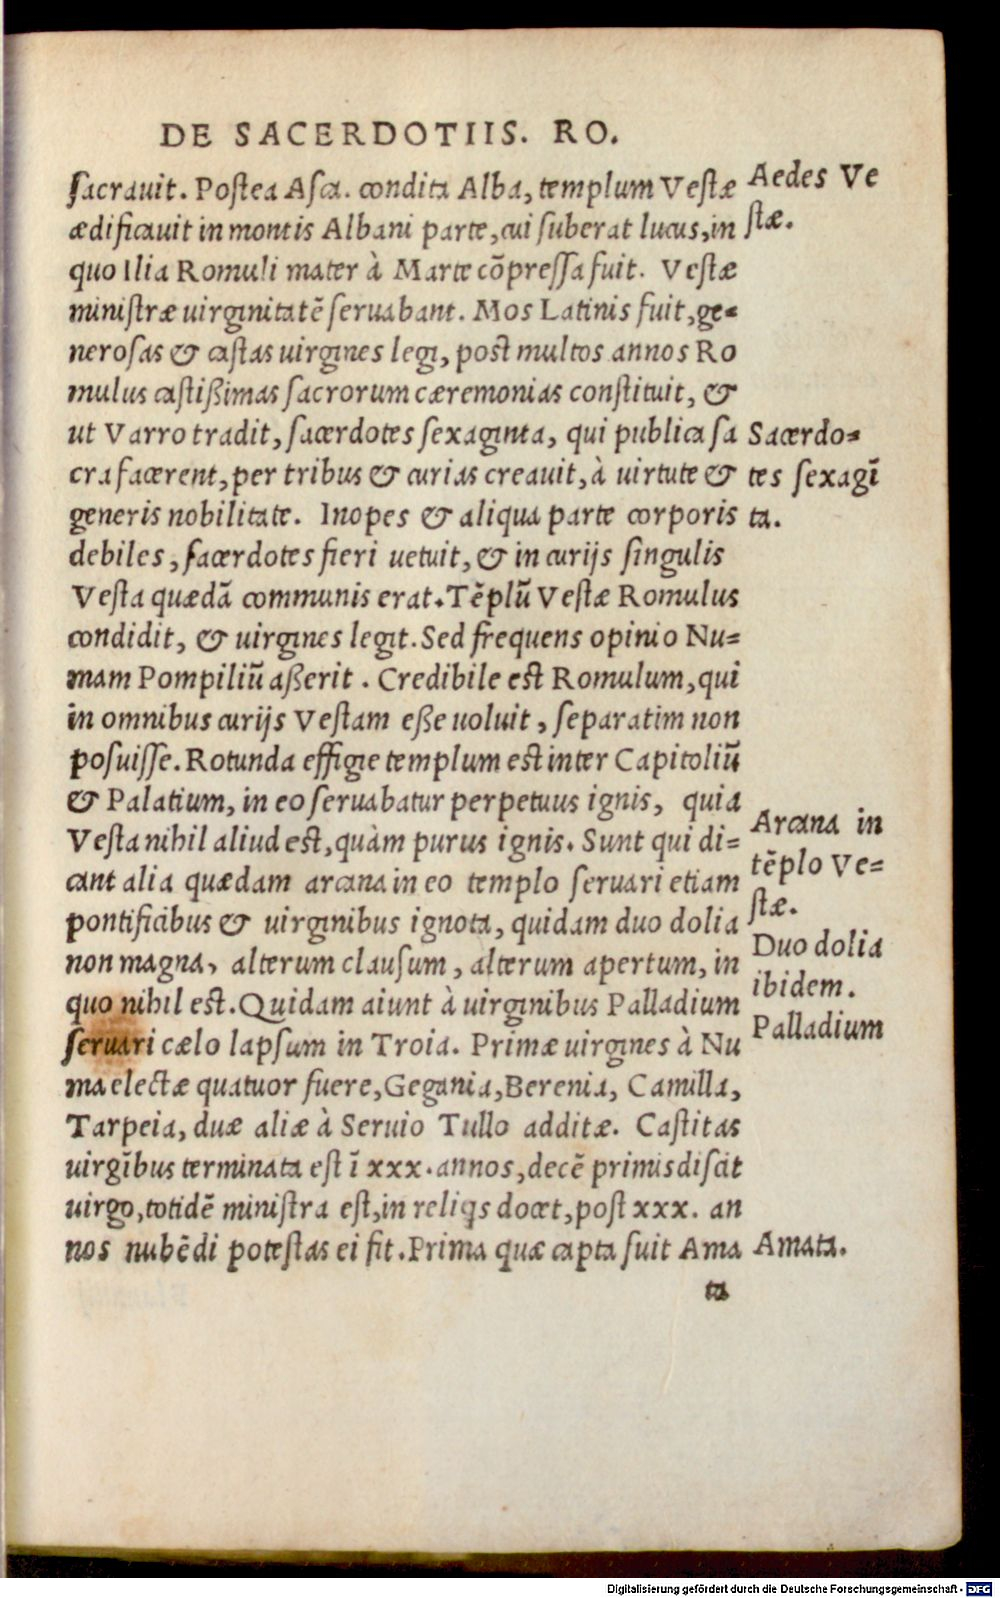 DE SACERDOTIIS. RO.
sacrauit. Postea Asca. condita Alba, templum Vestæ
ædificauit in montis Albani parte, cui suberat lucus, in
quo Ilia Romuli mater à Marte cõpressa fuit. Vestæ
ministræ uirginitatẽ seruabant. Mos Latinis fuit, ge-
nerosas & castas uirgines legi, post multos annos Ro
mulus castißimas sacrorum cæremonias constituit, &
ut Varro tradit, sacerdotes sexaginta, qui publica sa
cra facerent, per tribus & curias creauit, à uirtute &
generis nobilitate. Inopes & aliqua parte corporis
debiles, sacerdotes fieri uetuit, & in curijs singulis
Vesta quædã communis erat. Tẽplũ Vestæ Romulus
condidit, & uirgines legit. Sed frequens opinio Nu=
mam Pompiliũ aßerit. Credibile est Romulum, qui
in omnibus curijs Vestam eße uoluit, separatim non
posuisse. Rotunda effigie templum est inter Capitoliũ
& Palatium, in eo seruabatur perpetuus ignis, quia
Vesta nihil aliud est, quàm purus ignis. Sunt qui di=
cant alia quædam arcana in eo templo seruari etiam
pontificibus & uirginibus ignota, quidam duo dolia
non magna, alterum clausum, alterum apertum, in
quo nihil est. Quidam aiunt à uirginibus Palladium
seruari cælo lapsum in Troia. Primæ uirgines à Nu
ma electæ quatuor fuere, Gegania, Berenia, Camilla,
Tarpeia, duæ aliæ à Seruio Tullo additæ. Castitas
uirgĩbus terminata est ĩ xxx. annos, decẽ primis discit
uirgo, totidẽ ministra est, in reliqs docet, post xxx. an
nos nubẽdi potestas ei fit. Prima quæ capta fuit Ama
ta
Aedes Ve
stæ.
Sacerdo=
tes sexagĩ
ta.
Arcana in
tẽplo Ve=
stæ.
Duo dolia
ibidem.
Palladium
Amata.
Digitalisierung gefördert durch die Deutsche Forschungsgemeinschaft - DFG